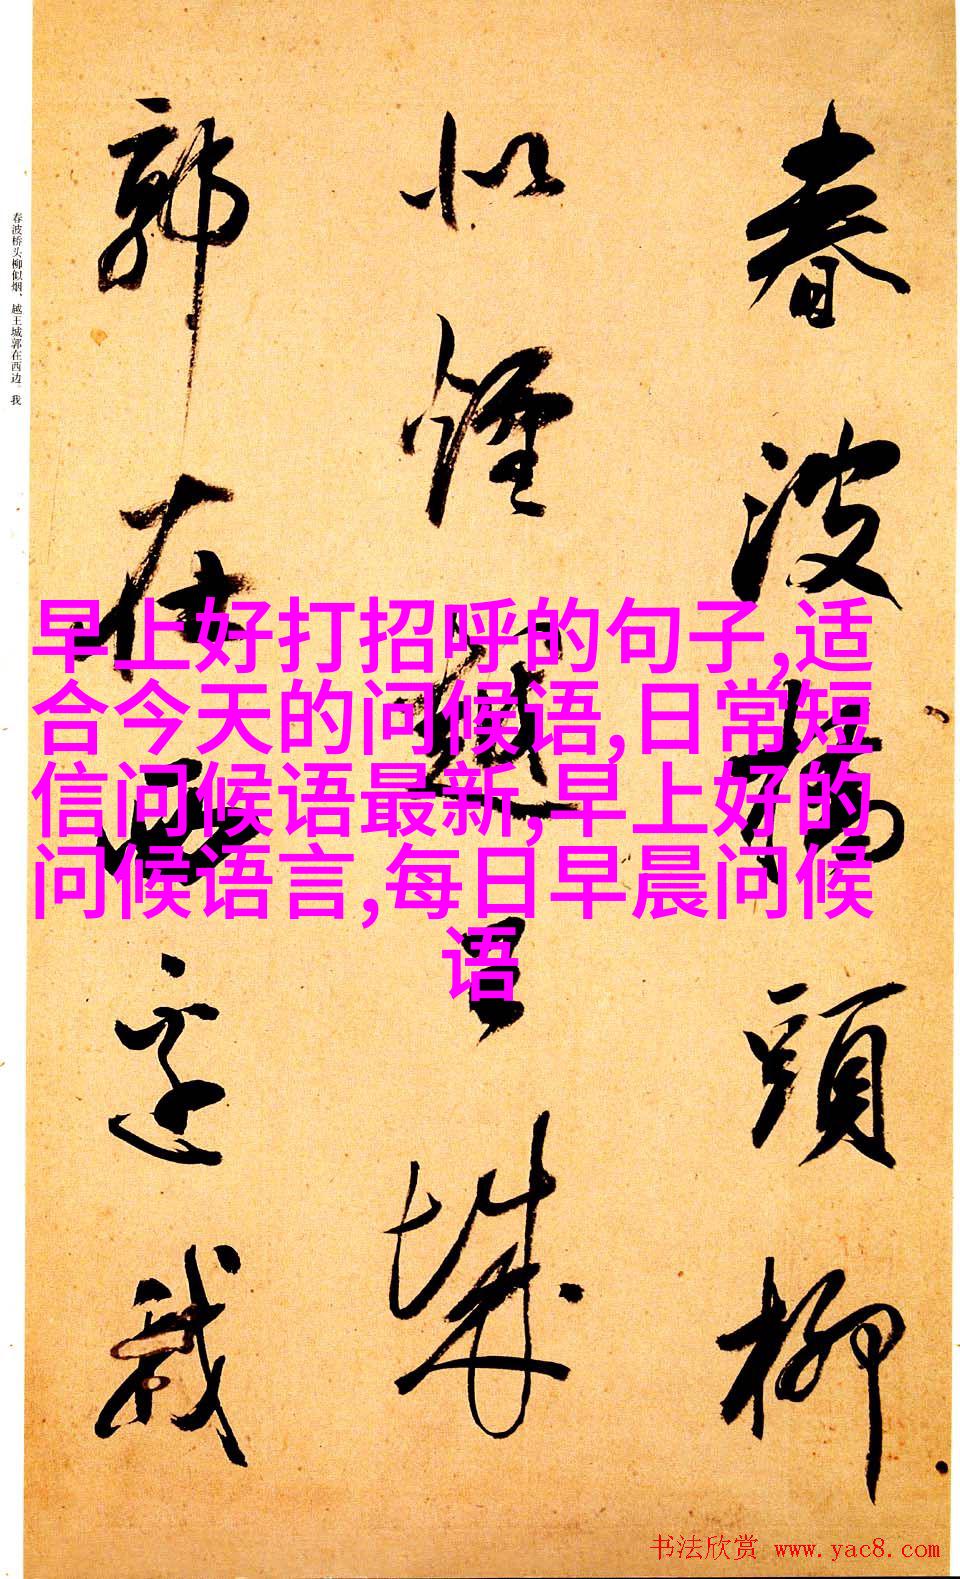 春波橋頭柳
似煙越王城
郭在西邊我
春波桥头柳似烟、越王城郭在西边。我
早上好打招呼的句子,适
合今天的问候语,日常短
信问候语最新,早上好的
问候语言,每日早晨问候
语
书法欣赏 www.yac8.com